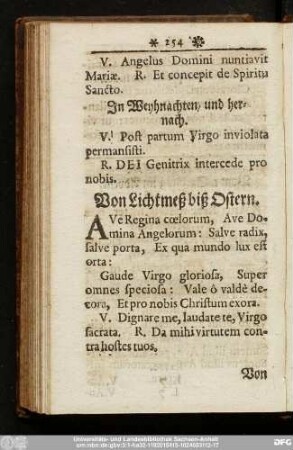 * 254 *
V. Angelus Domini nuntiavit
Mariæ. R. Et concepit de Spiritu
Sancto.
In Weyhnachten, und her-
nach.
V. Post partum Virgo inviolata
permansisti.
R. DEI Genitrix intercede pro
nobis.
Von Lichtmeß biß Ostern.
AVe Regina cœlorum, Ave Do-
mina Angelorum: Salve radix,
salve porta, Ex qua mundo lux est
orta:
Gaude Virgo gloriosa, Super
omnes speciosa: Vale ô valdè de-
cora, Et pro nobis Christum exora.
V. Dignare me, laudate te, Virgo
sacrata. R. Da mihi virtutem con-
tra hostes tuos.
Von
Universitäts- und Landesbibliothek Sachsen-Anhalt